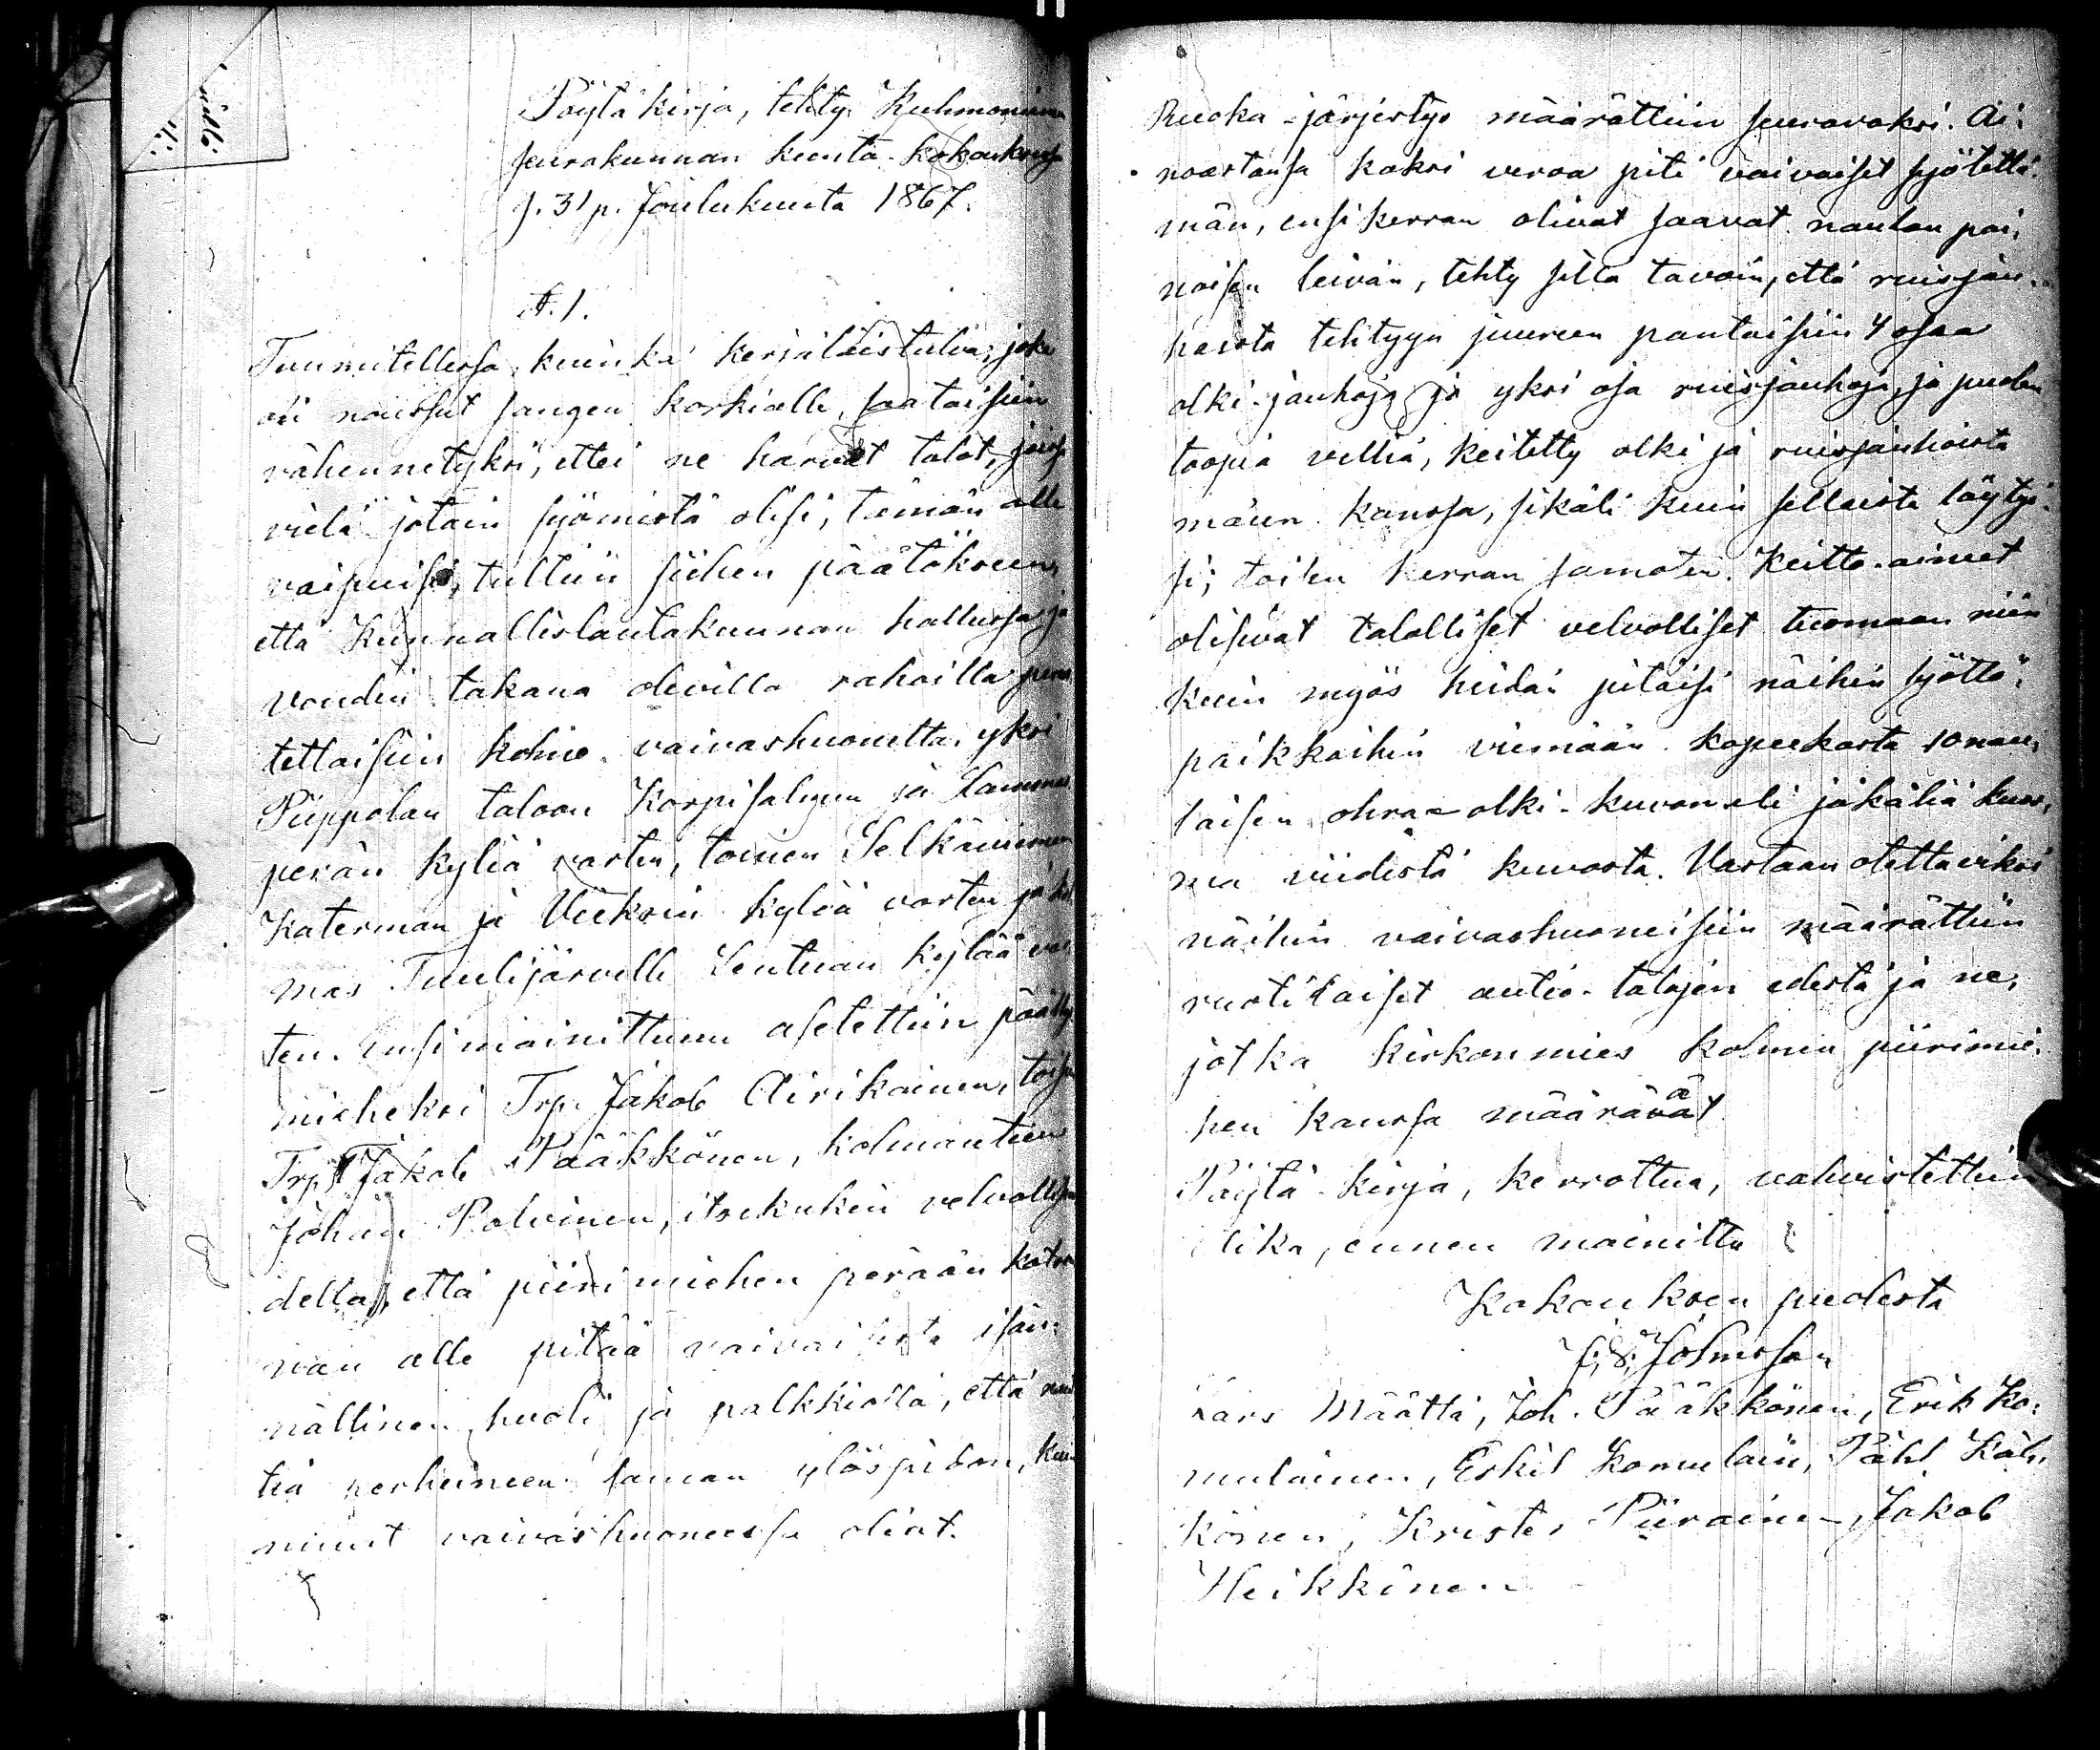 Pöytäkirja, tehty Kuhmoniemen
seurakunnan kunta-kokouksessa
j. 31 p. Joulukuuta 1867.
§. 1.
Tuumitellessa, kuinka kerjäläistulva, joka
oli noussut sangen korkialle, saataisiin
vähennetyksi, ettei ne harvat talot, joissa
vielä jotain syömistä olisi, tämän alle
vaipuisi, tultiin siihen päätökseen,
että Kunnallislautakunnan hallussa ja
voudin takana olevilla rahoilla perus
tettaisiin kolme vaivashuonetta, yksi
Piippolan taloon Korpisalmen ja Lammas
perän kyliä varten, toinen Selkäniemen
Katerman ja Vieksin kyliä varten ja kol
mas Tuulijärvelle Lentuan kylää var
ten. Ensimainittuun asetettiin päälly
mieheksi Trp. Jakob Airikainen, toiseen
Trp. Jakob Pääkkönen, kolmanteen
Johan Polvinen, itsekukin velvollisuu
della, että piirimiehen perään katso
van alle pitää vaivaisista isän-
nällinen huoli ja palkkiolla, että naut
tia perheineen saman ylöspidon, kuin
muut vaivashuoneessa oliat.
ilillä
Ruoka-järjestys määrättiin seuraavaksi. Ai-
noastansa kaksi veroa piti vaivaiset syötettä-
män, ensi kerran olivat saavat naulan pai-
noisen leivän, tehty sillä tavoin, että ruisjau-
hoista tehtyyn juureen pantaisiin 4 osaa
olki-jauhoja ja yksi osa ruisjauhoja, ja puolen
toopia velliä, keitetty olki ja ruisjauhoista
maun kanssa, sikäli kuin sellaista löytyi-
si; toisen kerran samoten. Keitto-aineet
olisivat talolliset velvolliset tuomaan niin
kuin myös heidän pitäisi näihin syöttö-
paikkoihin viemään kopeekasta 10 nau-
laisen ohra-olki-kuvon eli jäkäliä kuor-
ma viidestä kuvosta. Vastaan otettaviksi
näihin vaivashuoneisiin määrättiin
ruotilaiset autio-talojen edestä ja ne,
jotka kirkonmies kolmen piirimie-
hen kanssa määräävät
Pöytä-kirja, kerrottua, vahvistettiin
aika, ennen mainittu
Kokouksen puolesta
J. F. Johnsson
Lars Määttä, Joh. Pääkkönen, Erik Ko-
mulainen, Eskil Komulain, Påhl Käh-
könen, Krister Piirainen, Jakob
Heikkinen